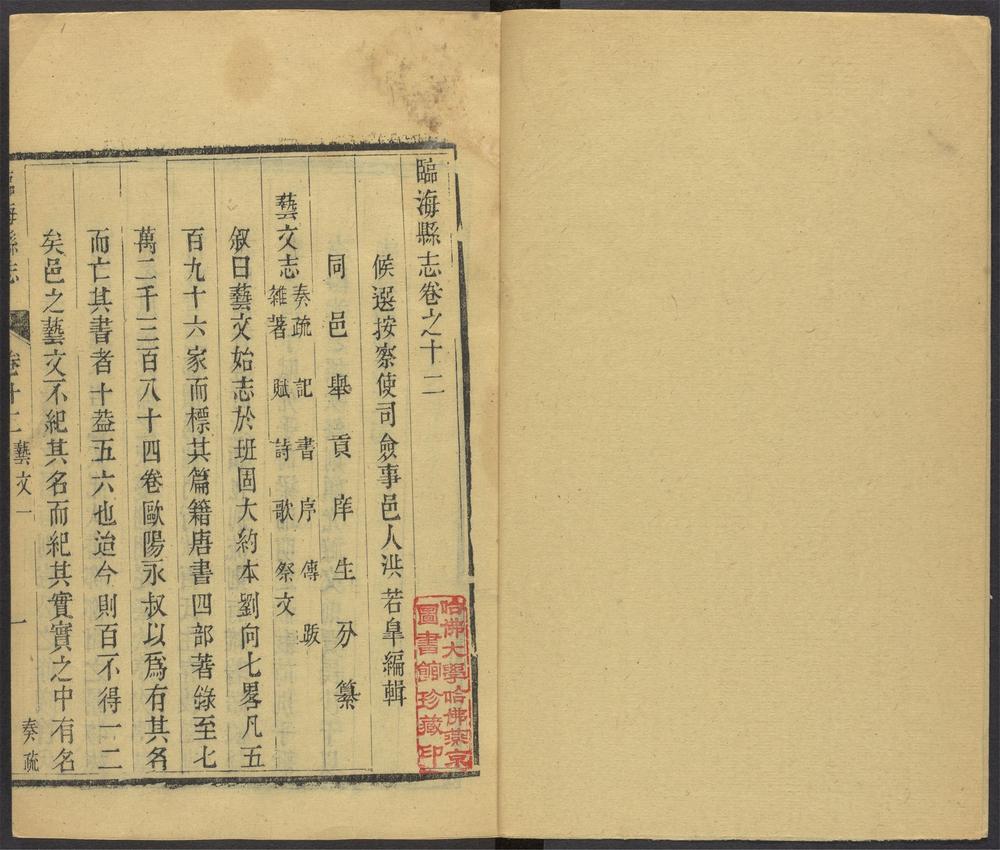 臨海縣志卷之十二
候選按察使司僉事邑人洪若皐編輯
同邑舉貢庠生分纂
藝文志 奏疏 記 書 序 傳 跋
雜著 賦 詩 歌 祭文
叙曰藝文始志於班固大約本劉向七畧凡五
百九十六家而標其篇籍唐書四部著錄至七
萬二千三百八十四卷歐陽永叔以爲有其名
而亡其書者十葢五六也迨今則百不得一二
矣邑之藝文不紀其名而紀其實實之中有名
臨海縣志 卷十二 藝文一 一 奏疏
哈佛大學哈佛燕京
圖書館珍藏印